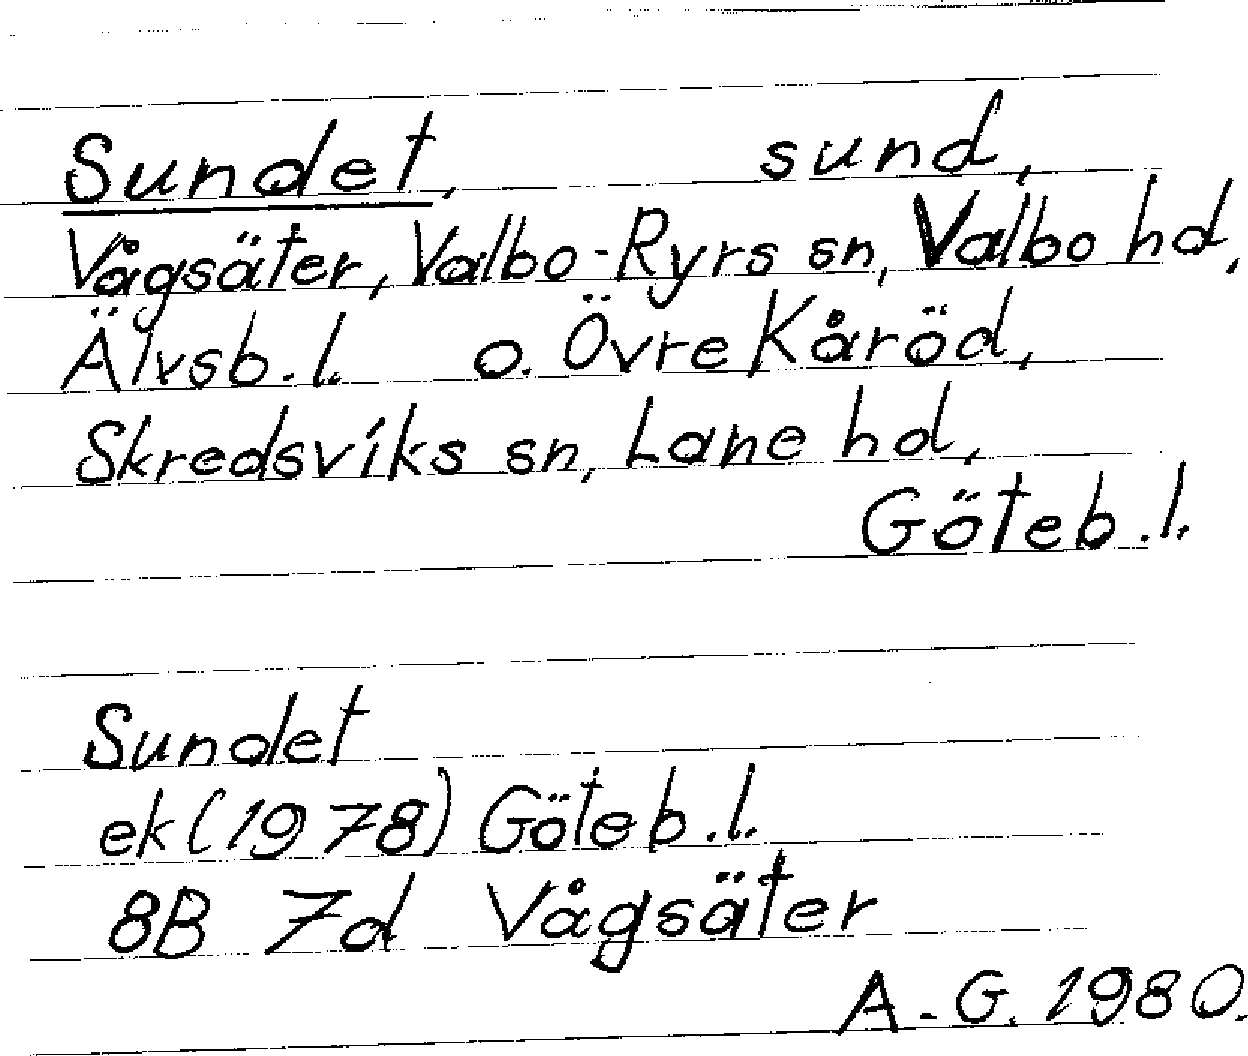 Sundet, sund,
Vågsäter, Valbo-Ryrs sn, Valbo hd,
Älvsb.l. o. Övre Kåröd,
Skredsviks sn, Lane hd,
Göteb.l.
Sundet
ek (1978) Göteb.l.
8B 7d Vågsäter
A-G. 1980.